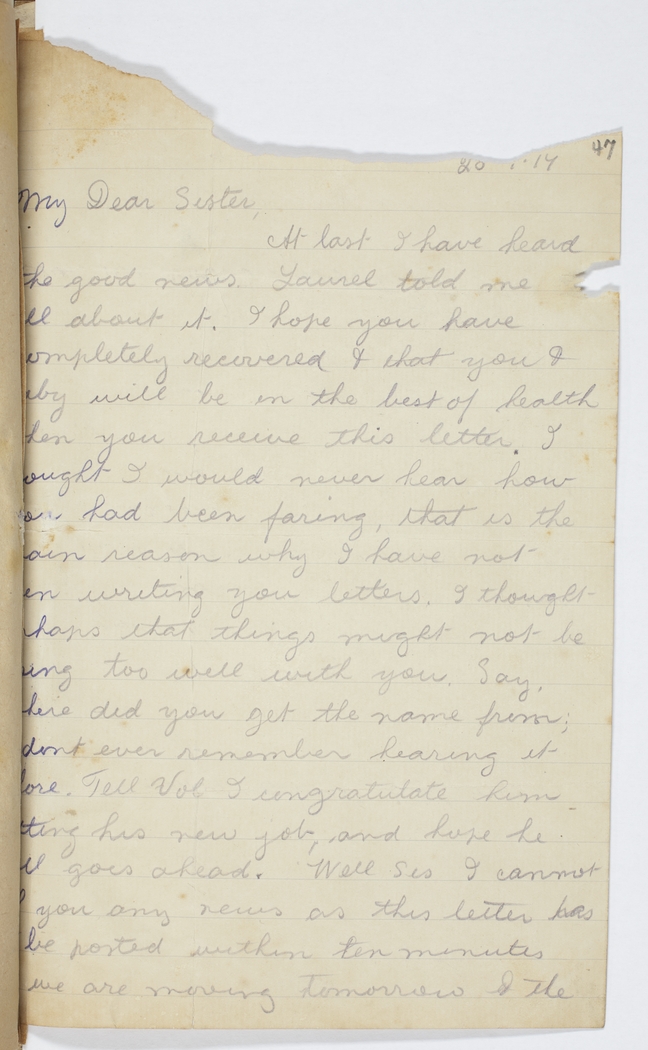 47
20 1.17
My Dear Sister,
At last I have heard
the good news. Laurel told me
ll about it. I hope you have
ompletely recovered & that you &
aby will be in the best of health
hen you receive this letter. I
ought I would never hear how
ou had been faring, that is the
ain reason why I have not
en writing you letters. I thought
rhaps that things might not be
ing too well with you. Say,
here did you get the name from;
dont ever remember hearing it
fore. Tell Vob I congratulate him
tting his new job, and hope he
ll goes ahead. Well Sis I cannot
l you any news as this letter has
be posted within ten minutes
we are moving tomorrow & the